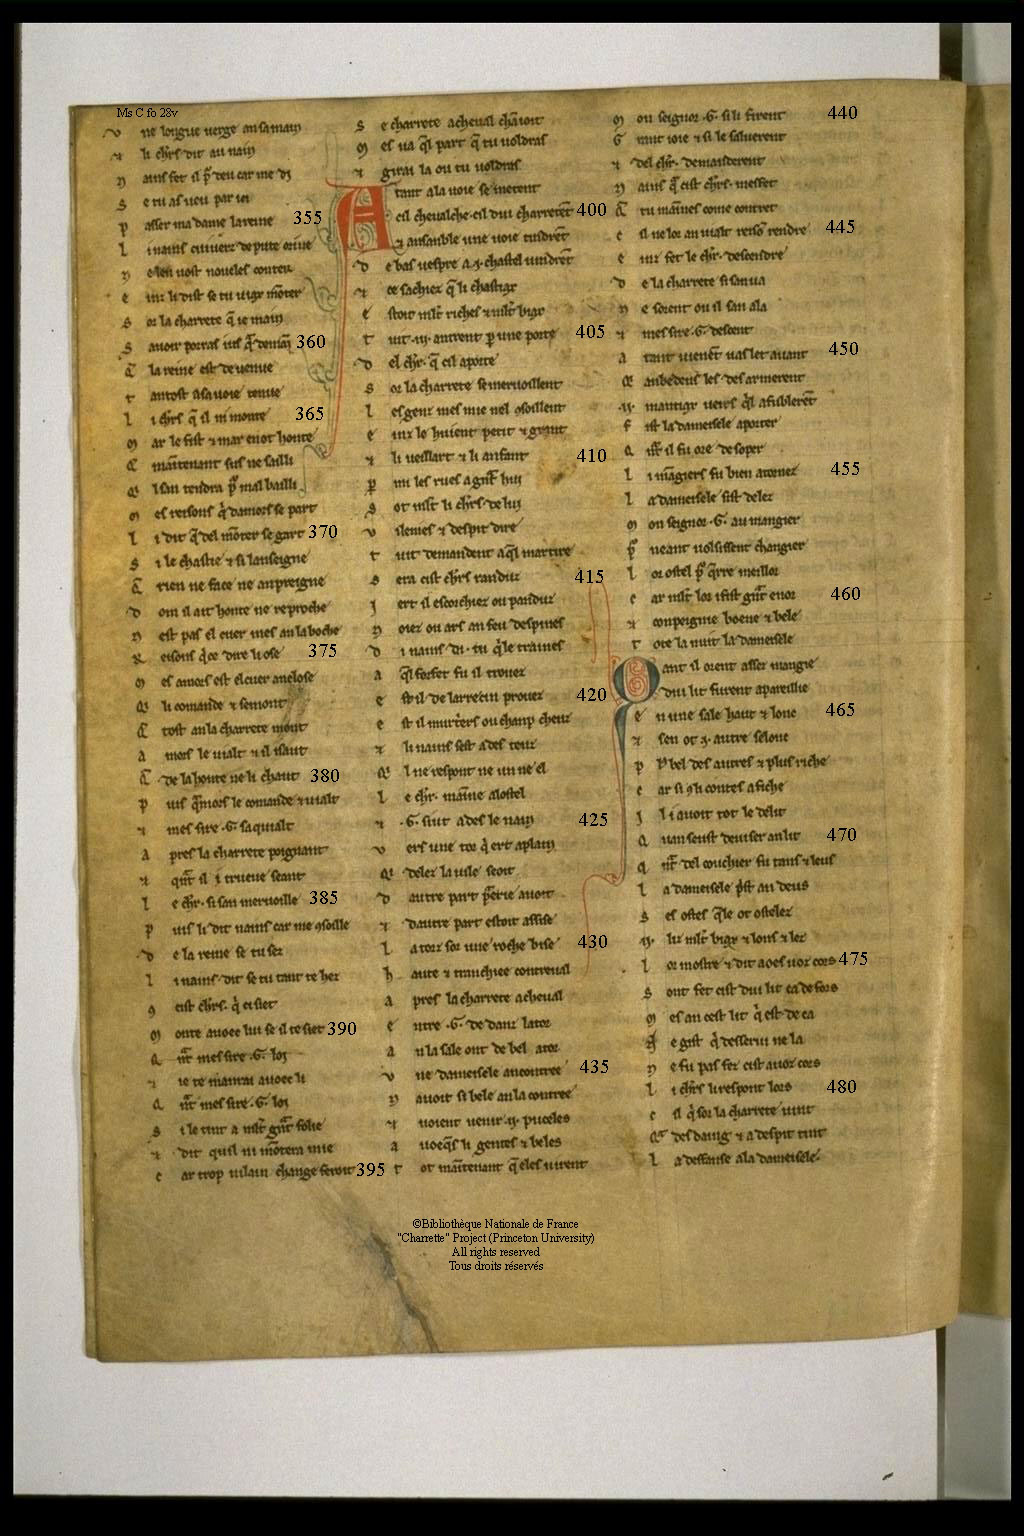 Ms C fo 28v
v ne longue verge an sa main
⁊ li chrs dit au nain
n ains fet il p deu car me di
s e tu as veu par ici
p asser ma dame la reine 355
l i nains cuivers de pute orine
n e len vost noveles conter
e inz li dist se tu viax monter
s or la charrete q ie main
s avoir porras iusq demain 360
q la reine est devenue
t antost a sa voie tenue
l i chrs q il ni monte 365
m ar le fist ⁊ mar en ot honte
q maintenant sus ne sailli
q il san tendra p mal bailli
m es reisons q damors se part
l i dit q del monter se gart 370
s i le chastie ⁊ si lanseigne
q rien ne face ne anpreigne
d om il ait honte ne reproche
n est pas el cuer mes an la boche
r eisons q ce dire li ose 375
m es amors est el cuer anclose
q li comande ⁊ semont
q tost an la charrete mont
a mors le vialt ⁊ il i saut
q de la honte ne li chaut 380
p uis qamors le comande ⁊ vialt
⁊ mes sire .G. saquialt
a pres la charrete poignant
⁊ qnt il i trueve seant
l e chr. si san mervoille 385
p uis li dit nains car me consoille
d e la reine se tu sez
l i nains dit se tu tant te hez
c cist chrs. q ci siet
m onte avoec lui se il te siet 390
q nt mes sire .G. loi
⁊ ie te manrai avoec li
q nt mes sire .G. loi
s i le tint a mlt gnt folie
⁊ dit quil ni montera mie
c ar trop vilain change feroit 395
s e charrete a cheval chanioit
m es va ql part q tu voldras
⁊ girai la ou tu voldras
A tant a la voie se metent
cil chevalche cil dui charretent 400
⁊ ansanble une voie tindrent
d e bas vespre a .i. chastel vindrent
⁊ ce sachiez q li chastiax
e stoit mlt riches ⁊ mlt biax
t uit .iii. antrent p une porte 405
d el chr. q cil aporte
s or la charrete se mervoillent
l es genz mes mie nel consoillent
e inz le huient petit ⁊ grant
⁊ li veillart ⁊ li anfant 410
p mi les rues a gnt hui
s ot mlt li chrs de lui
v ilenies ⁊ despit dire
t uit demandent a ql martire
s era cist chrs randuz 415
i ert il escorchiez ou panduz
n oiez ou ars an feu despines
d i nains di tu q le traines
a ql forfet fu il trovez
e st il de larrecin provez 420
e st il murtrers ou chanp cheuz
⁊ li nains sest ades teuz
q il ne respont ne un ne el
l e chr. mainne a lostel
⁊ .G. siut ades le nain 425
v ers une tor q ert a plain
q delez la vile seoit
d autre part praerie avoit
⁊ dautre part estoit assise
l a torz sor une roche bise 430
h aute ⁊ tranchiee contreval
a pres la charrete a cheval
e ntre .G. de danz la tor
a n la sale ont de bel ator
v ne dameisele ancontree 435
n avoit si bele an la contree
⁊ voient venir .ii. puceles
a voeqs li gentes ⁊ beles
t ot maintenant q eles virent
m on seignor .G. si li firent 440
g rant ioie ⁊ si le saluerent
⁊ del chr. demanderent
n ains q cist chrs. mesfet
q tu mainnes come contret
c il ne lor an vialt reson rendre 445
e inz fet le chr. descendre
d e la charrete si san va
n e sorent ou il san ala
⁊ mes sire .G. descent
a tant vienent vaslet avant 450
q anbedeus les desarmerent
.ii. mantiax veirs ql afublerent
f ist la dameisele aporter
q nt il fu ore de soper
l i mangiers fu bien atornez 455
l a dameisele sist delez
m on seignor .G. au mangier
p neant volsissent changier
l or ostel p qrre meillor
c ar mlt lor i fist gnt enor 460
⁊ conpeignie boene ⁊ bele
t ote la nuit la dameisele
Q ant il orent assez mangie
dui lit furent apareillie
e n une sale haut ⁊ lonc 465
⁊ sen ot .i. autre selonc
p l bel des autres ⁊ plus riche
c ar si con li contes afiche
i l i avoit tot le delit
q uan seust deviser an lit 470
q nt del couchier fu tans ⁊ leus
l a dameisele prist an deus
s es ostes qle ot ostelez
.ii. liz mlt biax ⁊ lons ⁊ lez
l or mostre ⁊ dit a oes voz cors 475
s ont fet cist dui lit ca defors
m es an cest lit q est de ca
n e gist q desservi ne la
n e fu pas fez cist a voz cors
l i chrs li respont lors 480
c il q sor la charrete vint
q desdaing ⁊ a despit tint
l a desfanse a la dameisele
©Bibliothèque Nationale de France
"Charrette" Project (Princeton University)
All rights reserved
Tous droits réservés